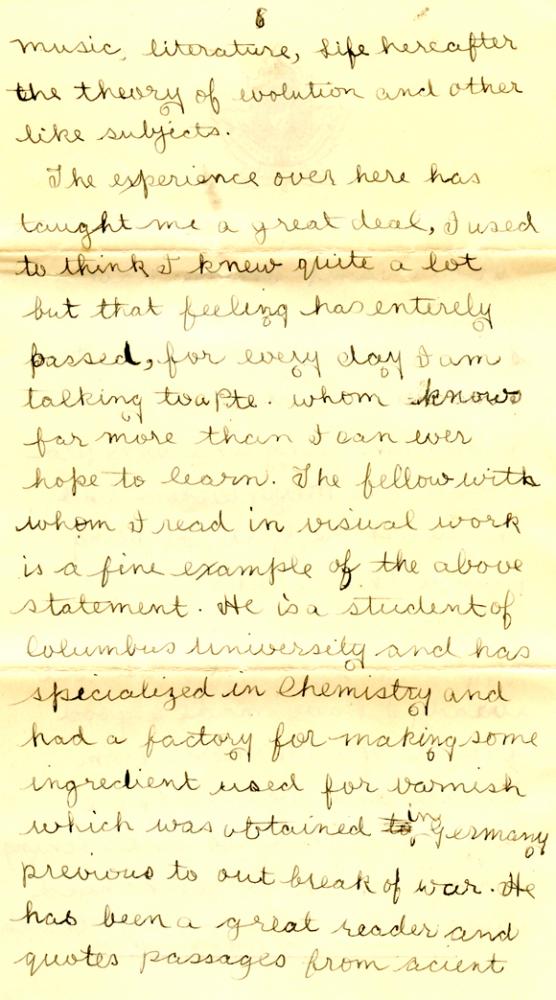 8
music, literature, life hereafter
the theory of evolution and other
like subjects.
The experience over here has
taught me a great deal, I used
to think I knew quite a lot
but that feeling has entirely
passed, for every day I am
talking to a Pte. whom knows
far more than I can ever
hope to learn. The fellow with
whom I read in visual work
is a fine example of the above
statement. He is a student of
Columbus University and has
specialized in Chemistry and
had a factory for making some
ingredient used for varnish
which was obtained to in Germany
previous to out break of war. He
has been a great reader and
quotes passages from acient